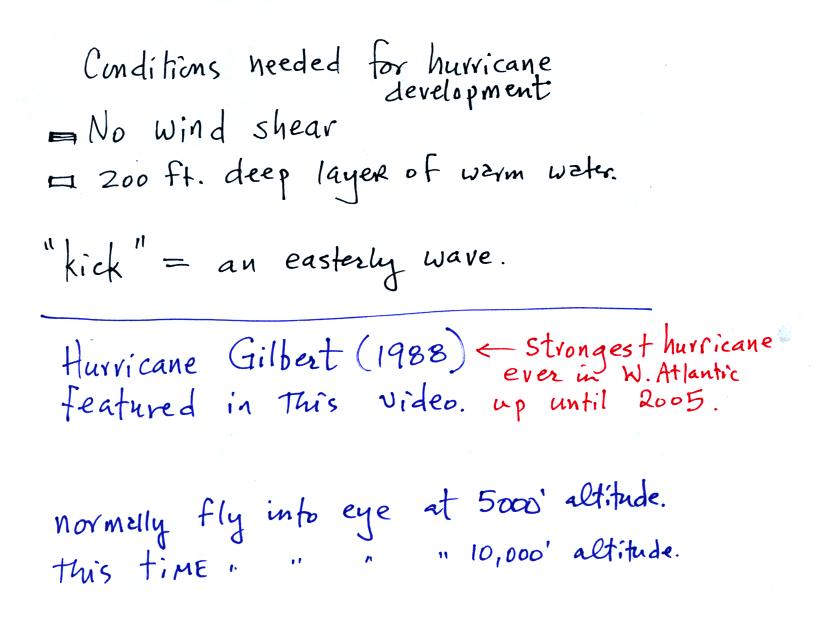 Conditions needed for hurricane
development
No wind shear
200 ft. deep layer of warm water.
"kick" = an easterly wave.
Hurricane Gilbert (1988) ← strongest hurricane
ever in W. Atlantic
featured in this video. up until 2005.
normally fly into eye at 5000' altitude.
this time " " " " 10,000' altitude.